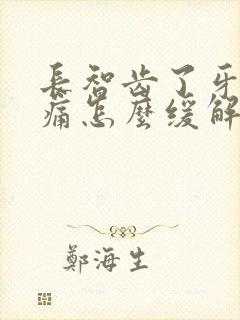 長智齿了牙
痛怎麼缓解
鄭海生